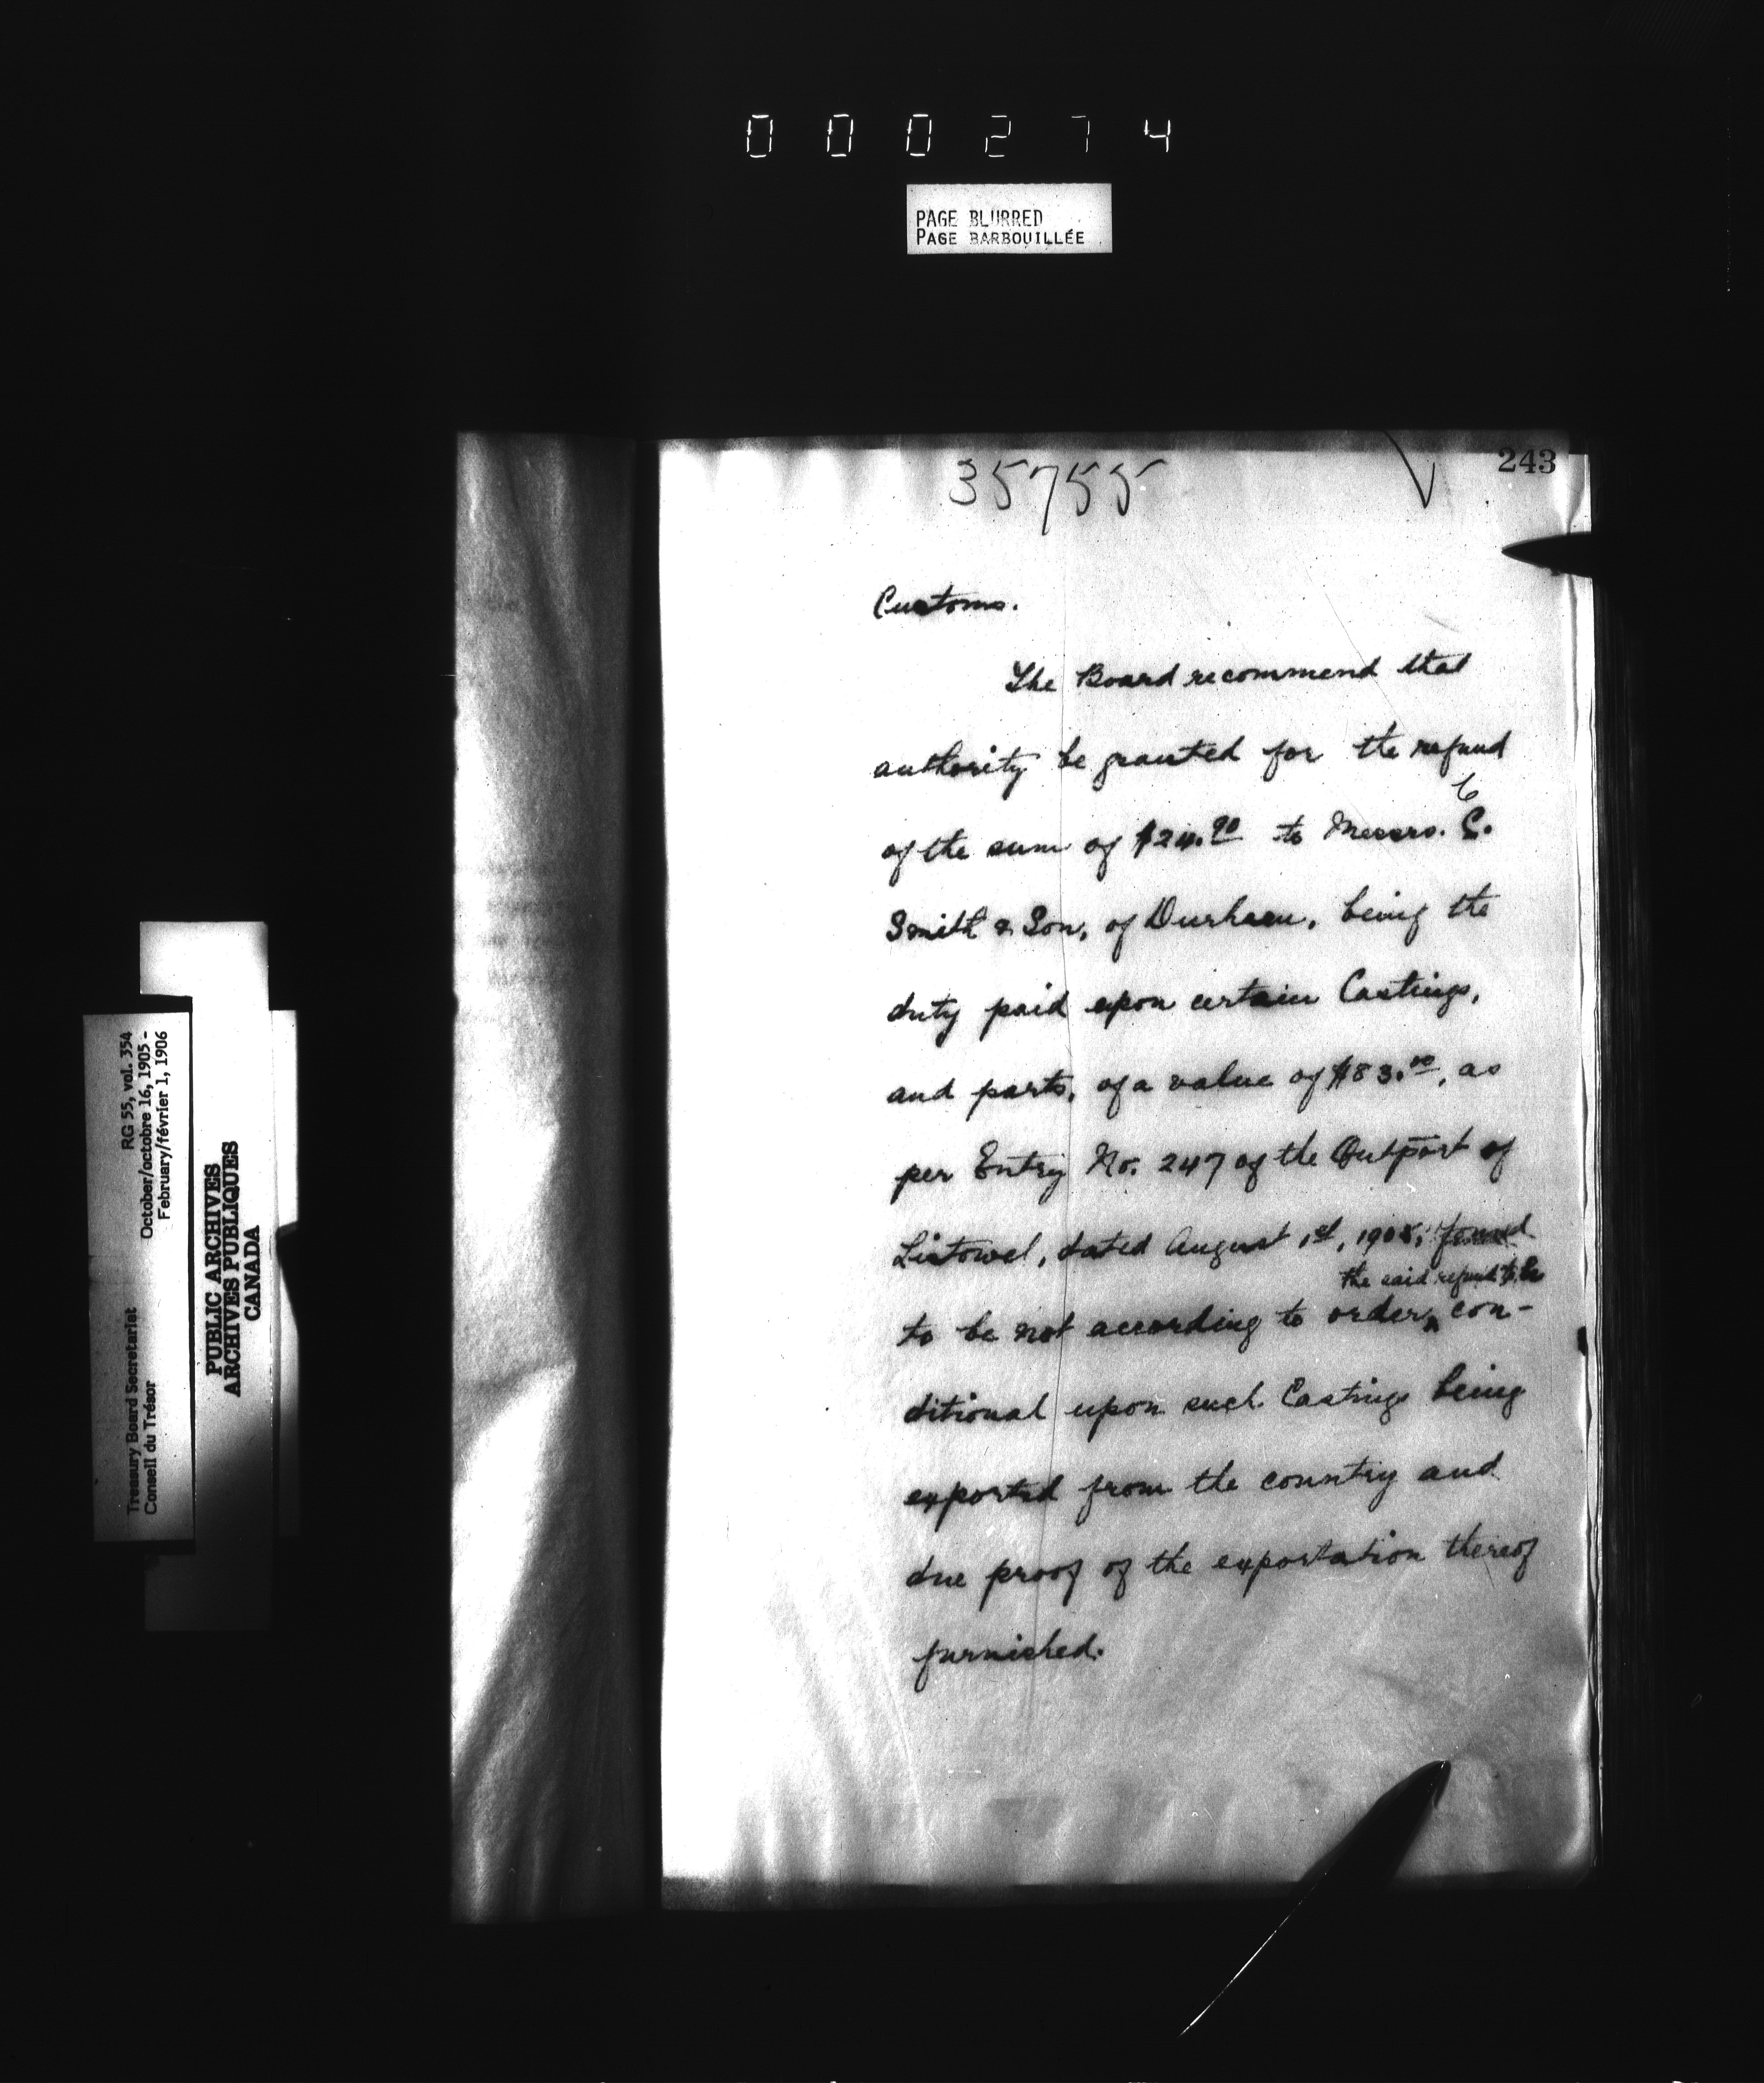 000274
PAGE BLURRED
PAGE BARBOUILLÉE
243
35755
Customs.
The Board recommend that
authority be granted for the refund
of the sum of $24.90 to Messrs. C.
Smith & Son, of Durham, being the
duty paid upon certain Castings,
and parts, of a value of $83.00, as
per Entry No. 247 of the Outport of
Listowel, dated August 1st, 1905, found
the said refund to be
to be not according to order, con-
ditional upon such Castings being
exported from the country and
due proof of the exportation thereof
furnished.
Treasury Board Secretariat RG 55, vol. 354
Conseil du Trésor October/octobre 16, 1905 -
February/février 1, 1906
PUBLIC ARCHIVES
ARCHIVES PUBLIQUES
CANADA